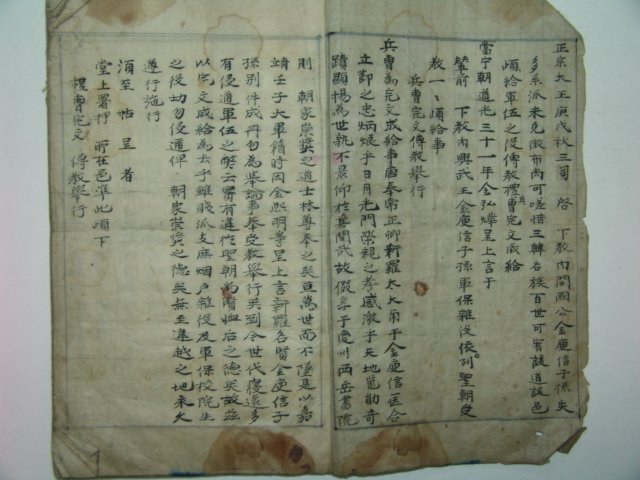 正宗大王庚戌秋三司 啓 下敎內開國公金庾信子孫失
多系派未免徵布內可嗟惜三韓右族百世可宥該道該邑
頉給軍伍之役傳敎禮曹完文成給
兵
當宁朝道光三十一年金弘 呈上言于
輦前 下敎內興武王金庾信子孫軍保雜役依 聖朝受
敎一一頉給事
兵曹完文傳敎擧行
兵曹爲完文成給事唐奉常正卿新羅太大角干金庾信匡合
立 之忠炳烺乎日月光門榮親之孝感激乎天地 勛奇
蹟顯揚萬世孰不景仰於其間哉故 享于慶州西岳書院
則 朝家崇奬之道士林尊奉之矣 亘萬世而不墜是以嘉
靖壬子大軍籍時因金熙明等呈上言新羅名賢金庾信子
孫別件成冊勿爲擧論事奉受敎擧行矣到今世代寢遠多
有侵逼軍伍之弊云實有違於聖朝 恤后之德矣故玆
以完文成給爲去乎雖賤派支庶烟戶雜役及軍保校院生
之役切勿侵逼俾 朝家崇奬之德矣無至違越之地永久
遵行施行
須至帖呈者
堂上署押 所在邑準此頉下
禮曹完文 傳敎擧行